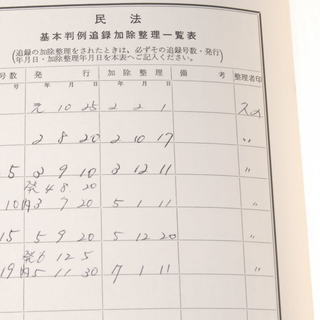 民法
基本判例追録加除整理一覧表
(追録の加除整理をされたときは、必ずその追録号数・発行
年月日・加除整理年月日を本表へご記入ください。)
号数 発行 加除整理 備考 整理者印
年 月 日 年 月 日
元 10 25 2 2 1
2 8 20 2 10 17 〃
5 3 9 10 3 12 11 〃
発4 8 20
10 内3 7 20 5 1 11 〃
15 5 9 20 5 12 20 〃
発6 12 5
19 内5 11 30 7 1 11 〃